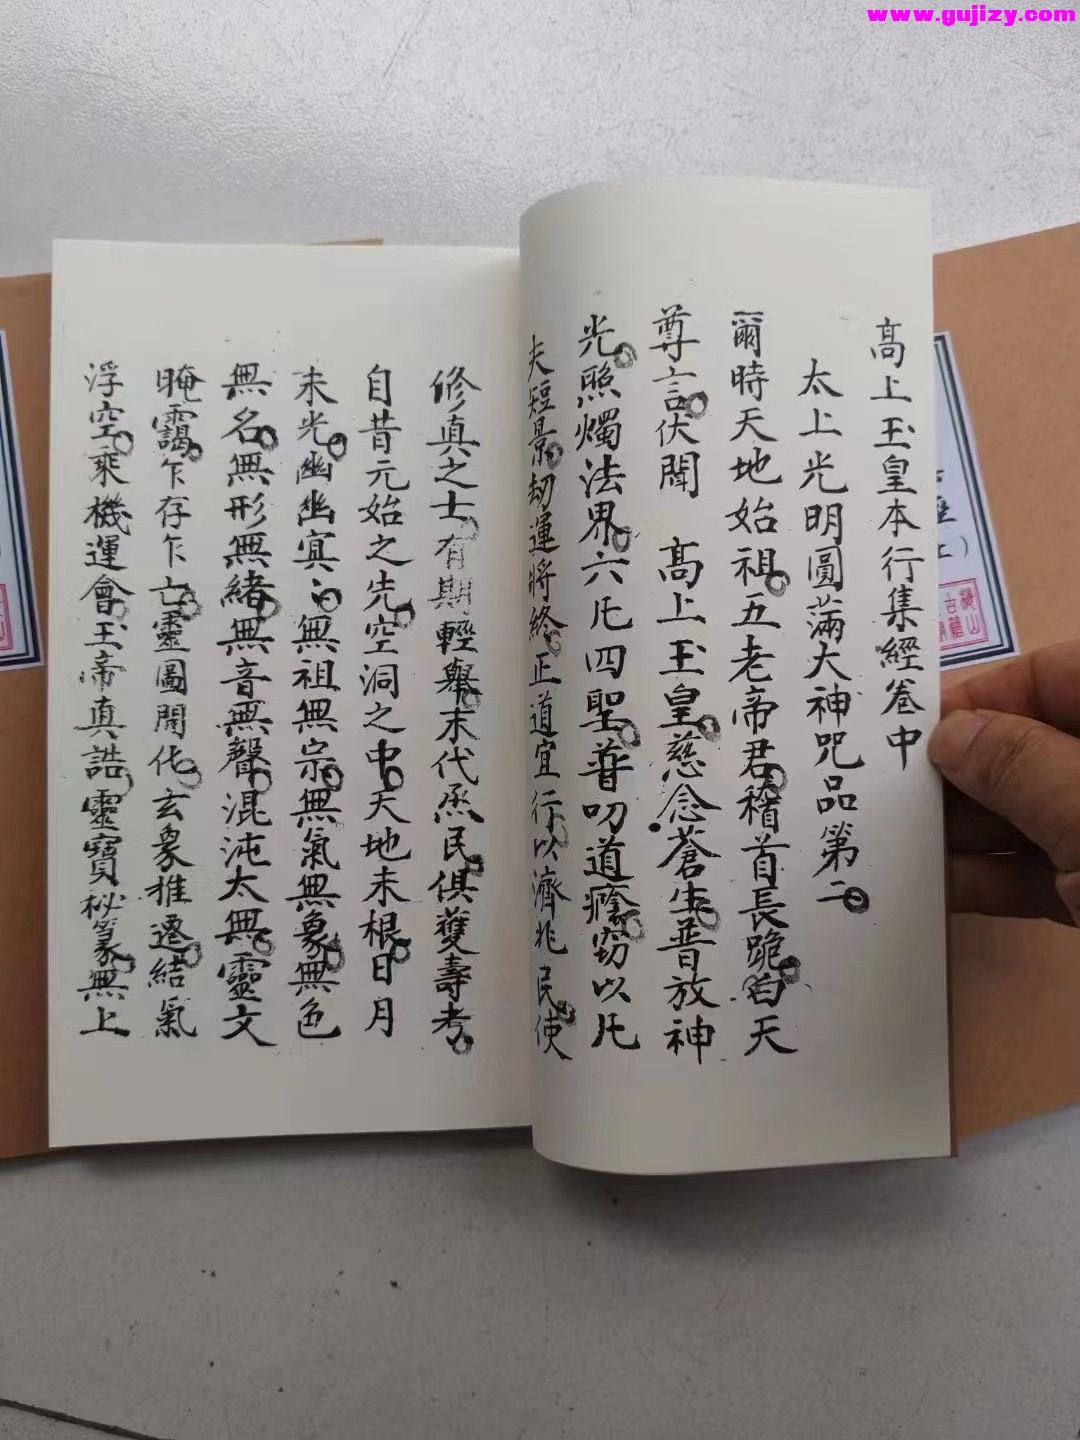 www.gujizy.com
高上玉皇本行集經卷中
太上光明圓滿大神咒品第二
爾時天地始祖五老帝君稽首長跪白天
尊言伏聞 高上玉皇慈念蒼生普放神
光照燭法界六凡四聖普叨道癊窃以凡
夫短景劫運將終正道宜行以濟兆民使
修真之士有期輕舉末代烝民俱獲壽考
自昔元始之先空洞之中天地未根日月
未光幽幽㝠㝠無祖無宗無氣無象無色
無名無形無緒無音無聲混沌太無靈文
晻靄乍存乍亡靈圖開化玄象推遷結氣
浮空乘機運會玉帝真誥靈寶秘篆無上